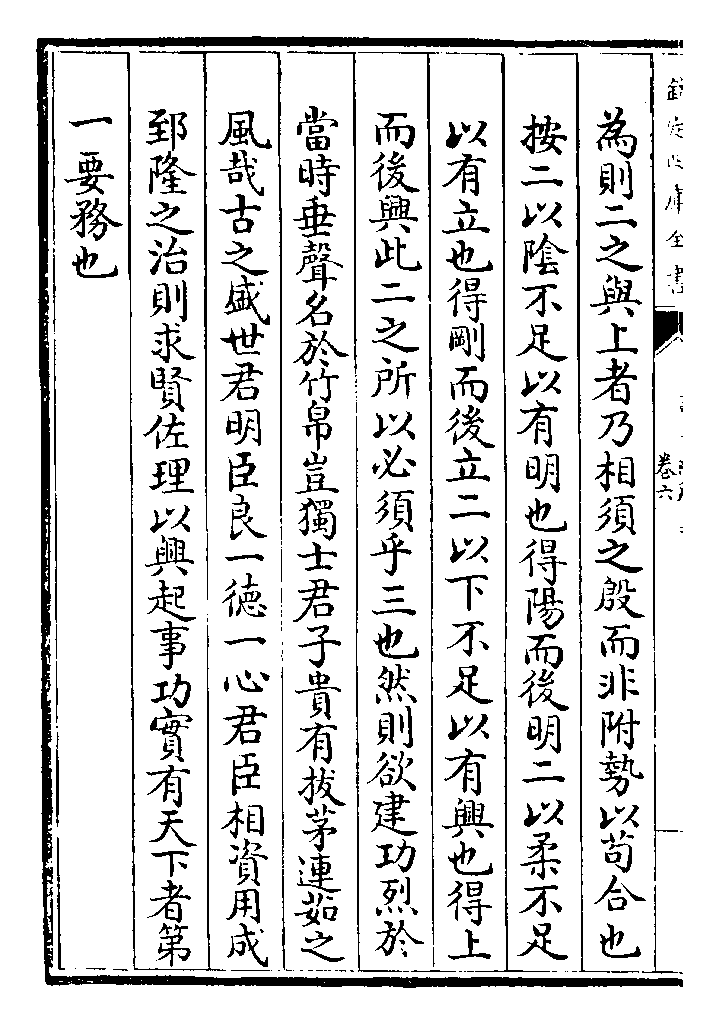 欽定四庫全書
卷六
為則二之與上者乃相須之殷而非附勢以苟合也
按二以陰不足以有明也得陽而後明二以柔不足
以有立也得剛而後立二以下不足以有興也得上
而後興此二之所以必須乎三也然則欲建功烈於
當時垂聲名於竹帛豈獨士君子貴有拔茅連茹之
風哉古之盛世君明臣良一德一心君臣相資用成
郅隆之治則求賢佐理以興起事功實有天下者第
一要務也